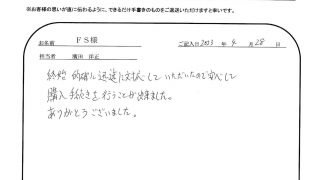 ※お客様の思いが直に伝わるように、できるだけ手書きのものをご返送いただけますと幸いです。
お名前 FS様 ご記入日2023年4月28日
担当者 濱田 洋正
終始 的確に迅速に対応していただいたので安心して
購入手続きを行うことが出来ました。
ありがとうございました。